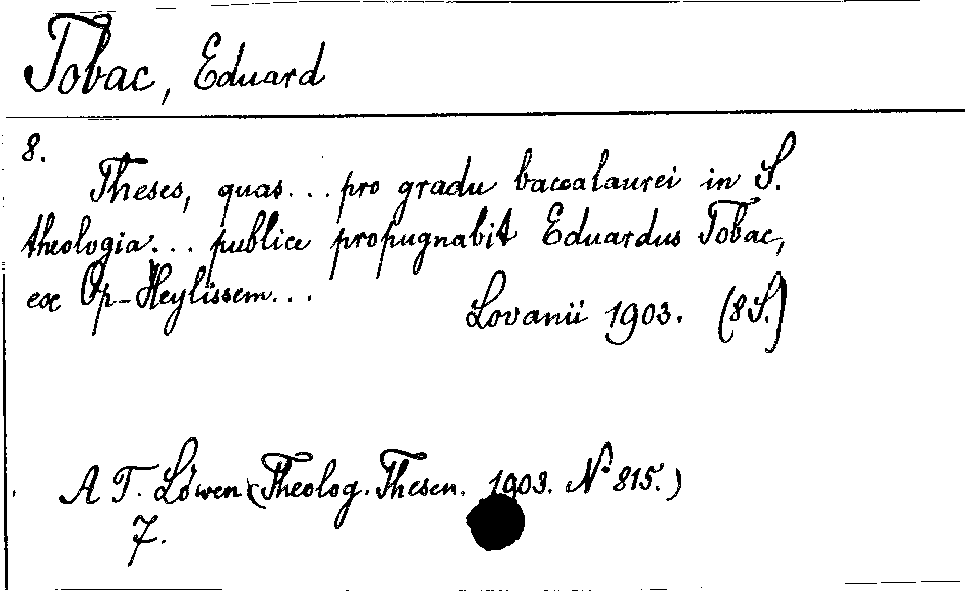 Tobac, Eduard
8.
Theses, quas... pro gradu baccalaurei in S.
theologia... publice propugnabit Eduardus Tobac,
ex Op-Heylissem...
Lovanii 1903. (8 S.)
A T. Löwen (Theolog. Thesen. 1903. No 815.)
7.